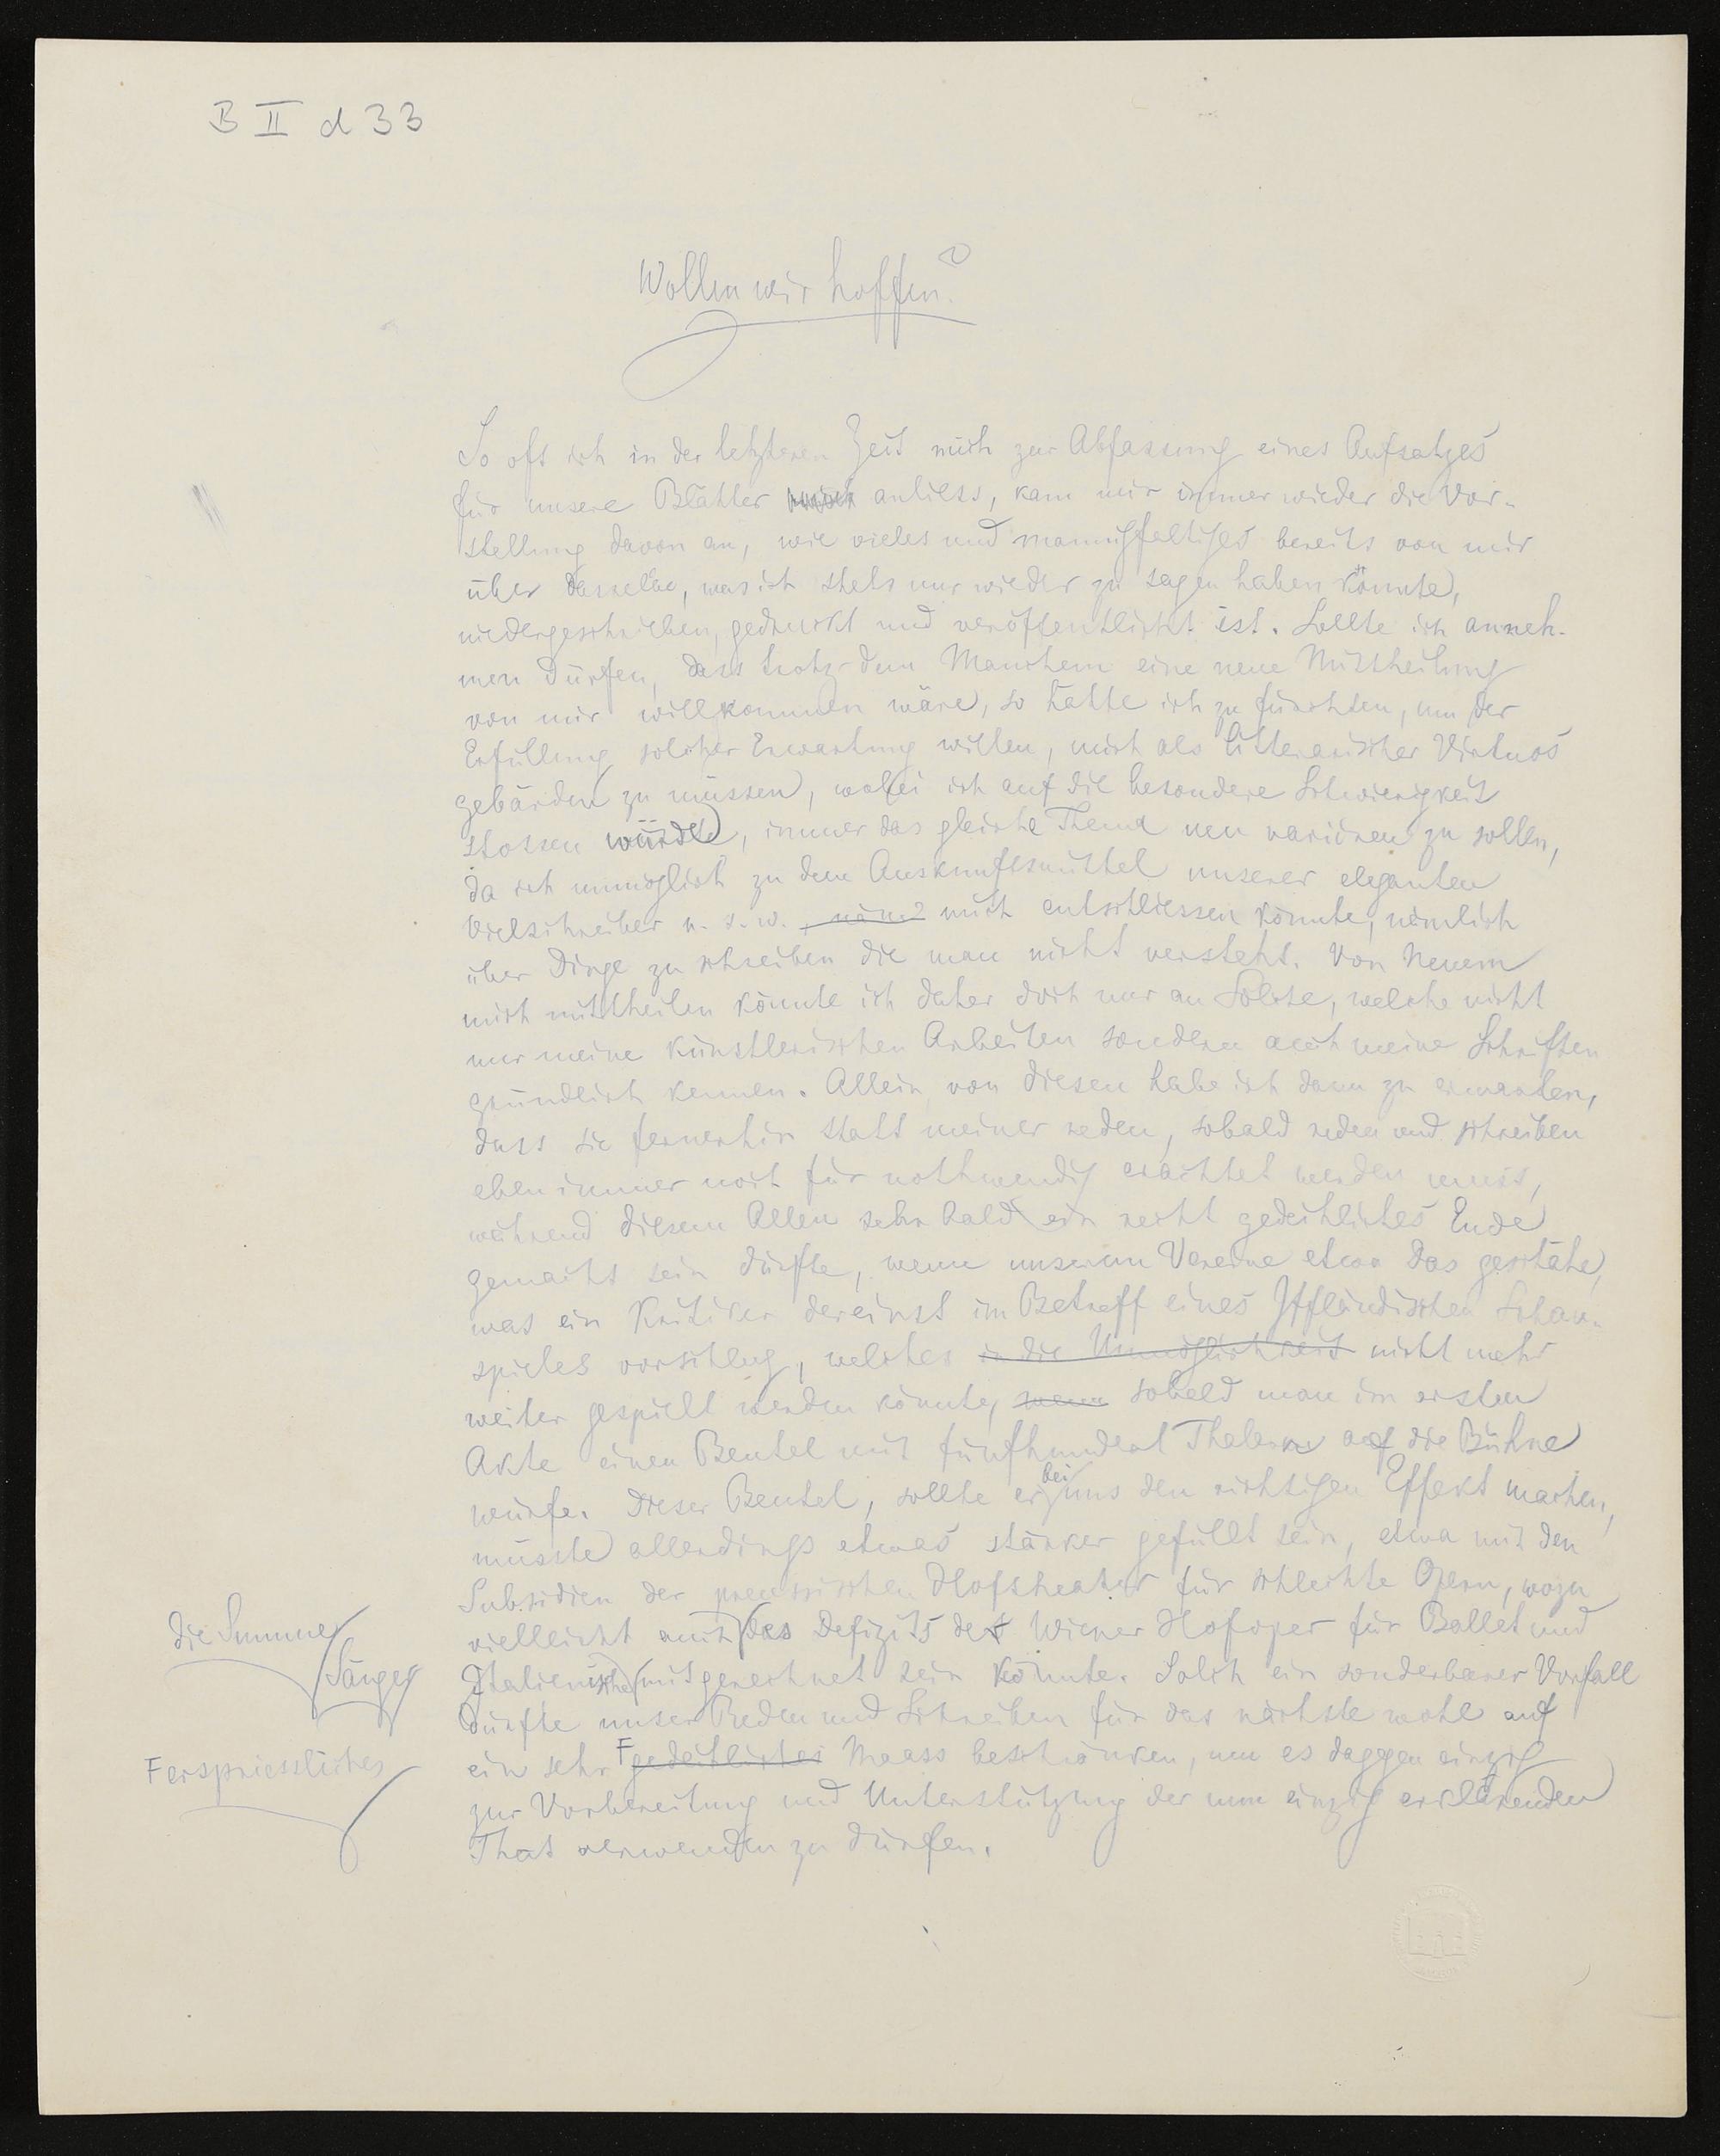 B II d 33
Wollen wir hoffen?
So oft ich in der letzteren Zeit mich zur Abfassung eines Aufsatzes
für unsere Blätter anliess, kam mir immer wieder die Vor-
stellung davon an, wie vieles und mannigfaltiges bereits von mir
über dasselbe, was ich stets nur wieder zu sagen haben könnte,
niedergeschrieben, gedruckt und veröffentlicht ist. Sollte ich anneh-
men dürfen, dass trotz dem Manchem eine neue Mittheilung
von mir willkommen wäre, so hätte ich zu fürchten, um der
Erfüllung solcher Erwartung willen, mich als litterarischer Virtuos
gebärden zu müssen, wobei ich auf die besondere Schwierigkeit
stossen würde, immer das gleiche Thema neu variiren zu sollen,
da ich unmöglich zu dem Auskunftsmittel unserer eleganten
Vielschreiber u. s. w. mich entschliessen könnte, nämlich
über Dinge zu schreiben die man nicht versteht. Von Neuem
mich mittheilen könnte ich daher doch nur an Solche, welche nicht
nur meine künstlerischen Arbeiten sondern auch meine Schriften
gründlich kennen. Allein von diesen habe ich dann zu erwarten,
dass sie fernerhin statt meiner reden, sobald reden und schreiben
eben immer noch für nothwendig erachtet werden muss,
während diesem Allen sehr bald ein recht gedeihliches Ende
gemacht sein dürfte, wenn unserem Vereine etwa das geschähe,
was ein Kritiker dereinst im Betreff eines Iffländischen Schau-
spieles vorschlug, welches in die Unmöglichkeit nicht mehr
weiter gespielt werden könnte, wenn sobald man im ersten
Akte einen Beutel mit fünfhundert Thalern auf die Bühne
würfe. Dieser Beutel, sollte er bei uns den richtigen Effekt machen,
müsste allerdings etwas stärker gefüllt sein, etwa mit den
Subsidien der preussischen Hoftheater für schlechte Opern, wozu
die Summe
vielleicht auch des Defizits der Wiener Hofoper für Ballet und
Sänger
Italienische mitgerechnet sein könnte. Solch ein sonderbarer Vorfall
dürfte unser Reden und Schreiben für das nächste wohl auf
F erspriessliches
ein sehr F gedeihliches Maass beschränken, um es dagegen einzig
zur Vorbereitung und Unterstützung der nun einzig erklärenden
That verwenden zu dürfen.